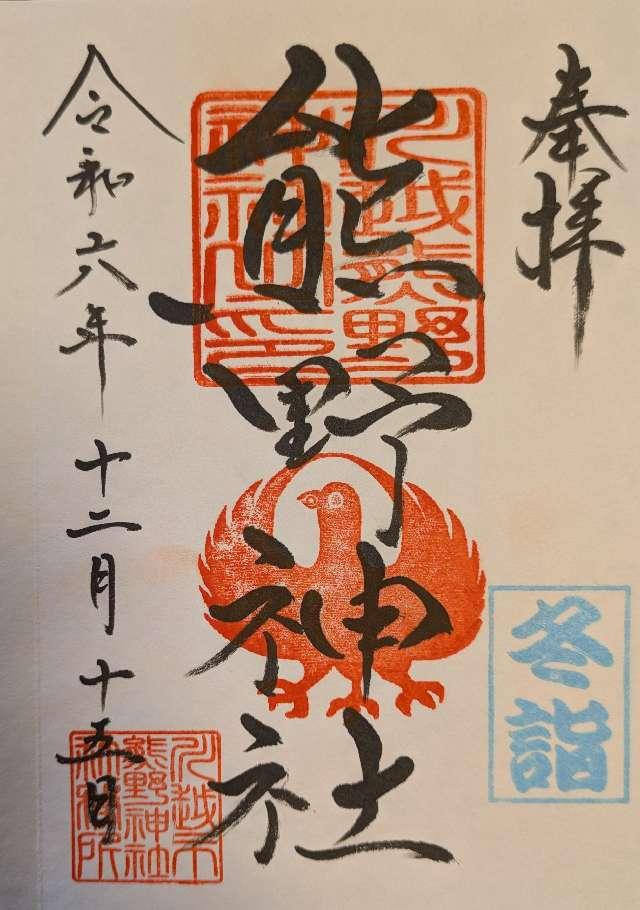 奉拝
冬詣
川越熊野
神社之印
熊野神社
令和六年十二月十五日
川越市
熊野神社
社務所